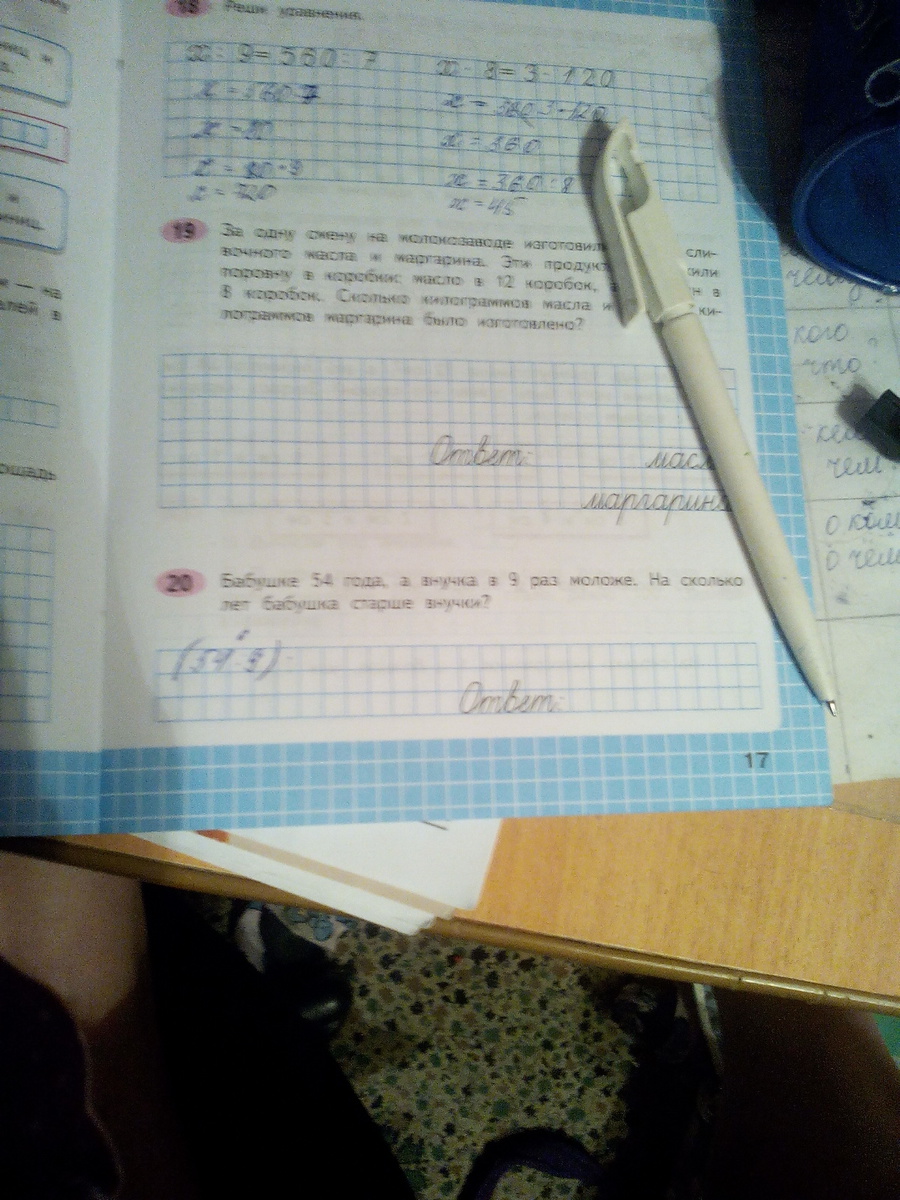 18 Реши уравнения.
x : 9 = 560 : 7
x · 8 = 3 · 120
x = 560:7
x = 3·120
x = 80
x = 360
x = 80·9
x = 360:8
x = 720
x = 45
19 За одну смену на молокозаводе изготовил сли-
вочного масла и маргарина. Эти продукт или
поровну в коробки: масло в 12 коробок, н в
8 коробок. Сколько килограммов масла и ки-
лограммов маргарина было изготовлено?
Ответ: масл
маргарина
20 Бабушке 54 года, а внучка в 9 раз моложе. На сколько
лет бабушка старше внучки?
(54:9)
6
Ответ:
17
ниц и
и
иниц.
и — на
алей в
ощадь
кого
что?
чем
о ком
о чем